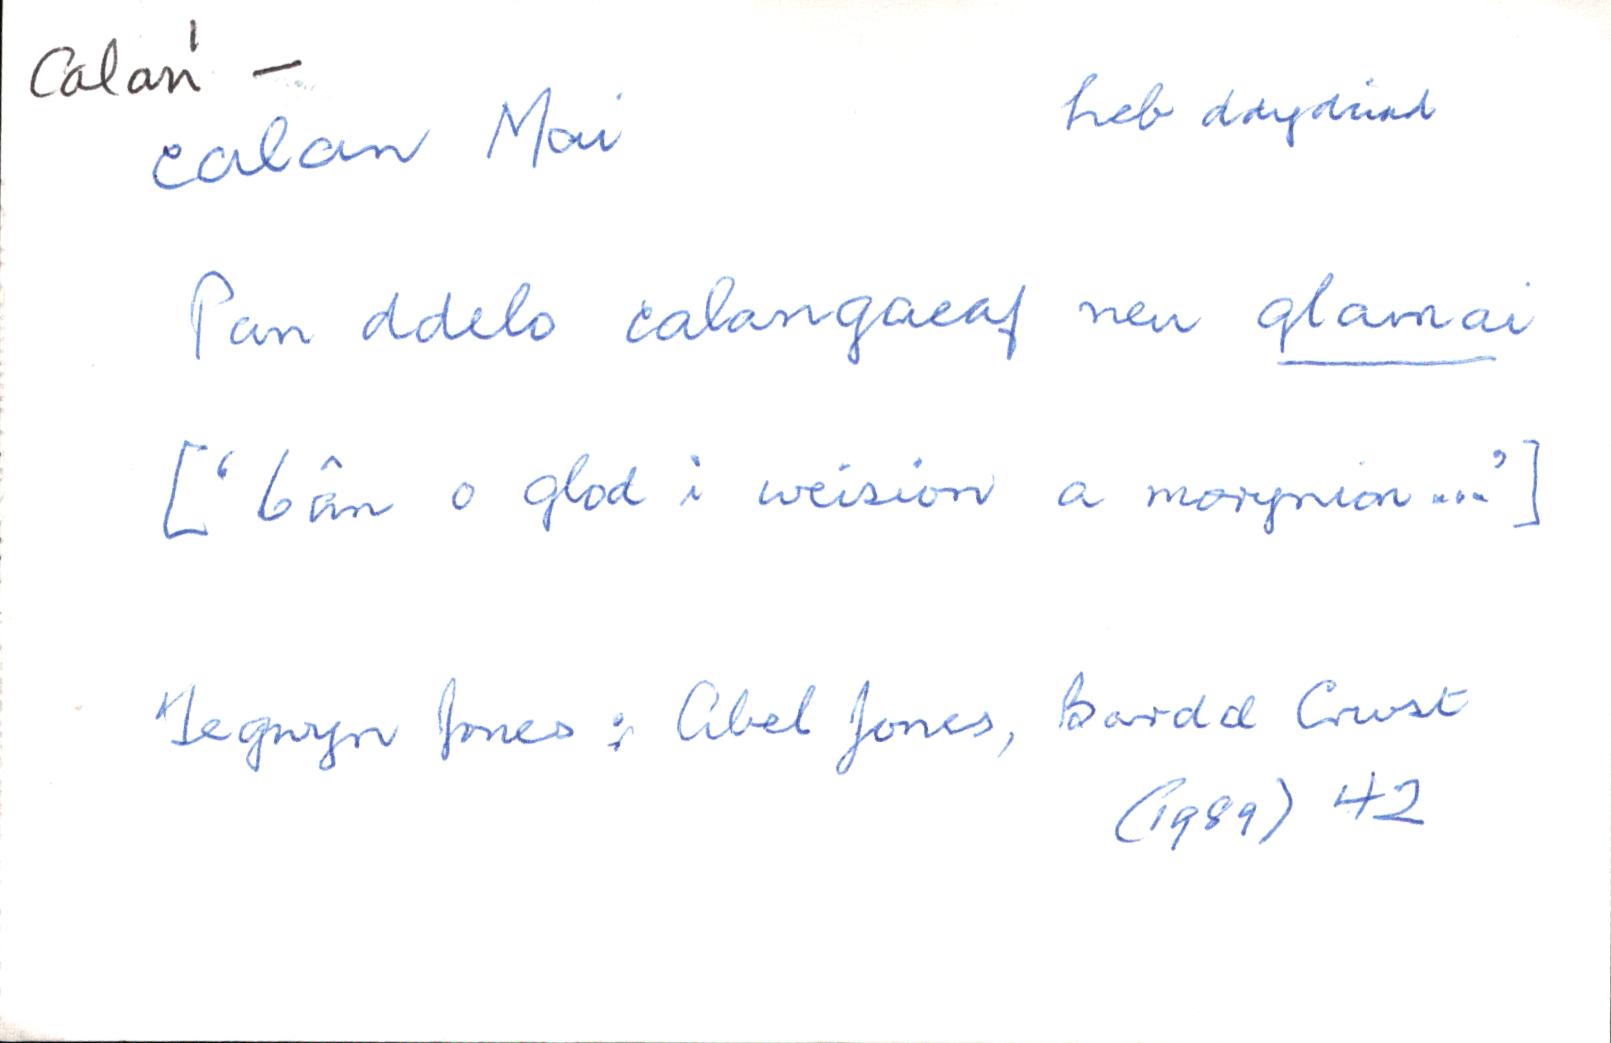 Calan¹ –
calan Mai
heb ddyddiad
Pan ddelo calangaeaf neu glamai
[‘Cân o glod i weision a morynion ...’]
Tegwyn Jones : Abel Jones, Bardd Crwst
(1989) 42